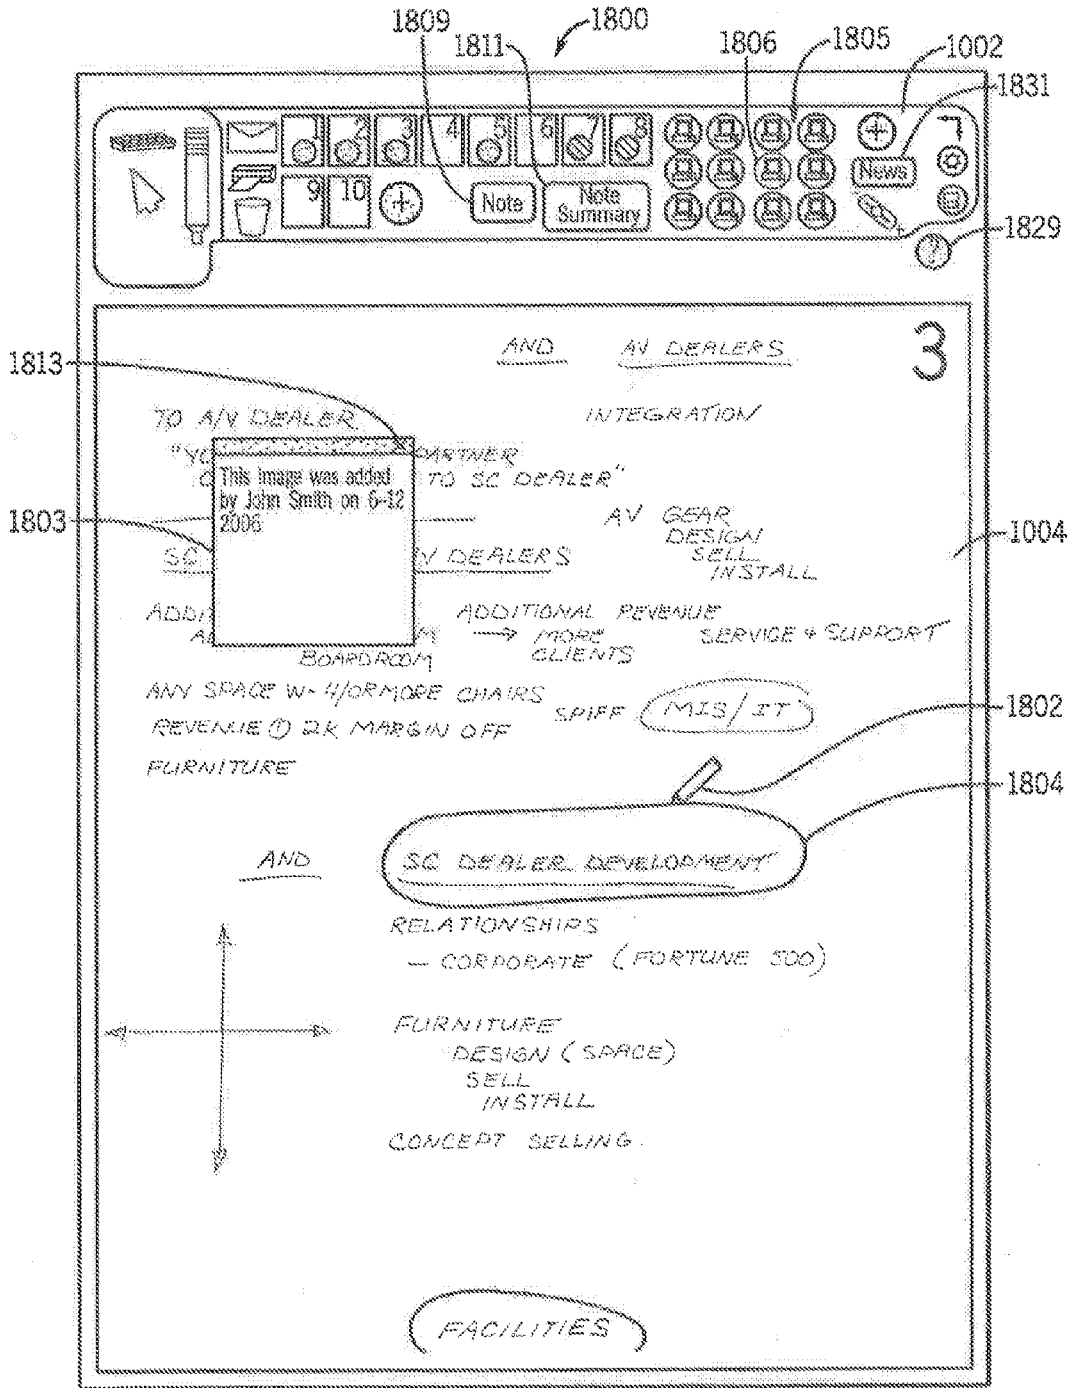 1809
1811
1800
1806
1805
1002
1831
1 2 3 4 5 6 7 8
9 10
Note
Note
Summary
News
?
1829
3
1813
AND AV DEALERS
TO A/V DEALER
INTEGRATION
"YO PARTNER
TO SC DEALER"
This image was added
by John Smith on 6-12
2006
1803
AV GEAR
DESIGN
SELL
INSTALL
1004
SC V DEALERS
ADDI ADDITIONAL REVENUE
A M → MORE SERVICE + SUPPORT
CLIENTS
BOARDROOM
ANY SPACE W- 4/OR MORE CHAIRS
SPIFF MIS/IT
REVENUE ① 2K MARGIN OFF
FURNITURE
1802
1804
AND SC DEALER DEVELOPMENT
RELATIONSHIPS
— CORPORATE (FORTUNE 500)
FURNITURE
DESIGN (SPACE)
SELL
INSTALL
CONCEPT SELLING
FACILITIES